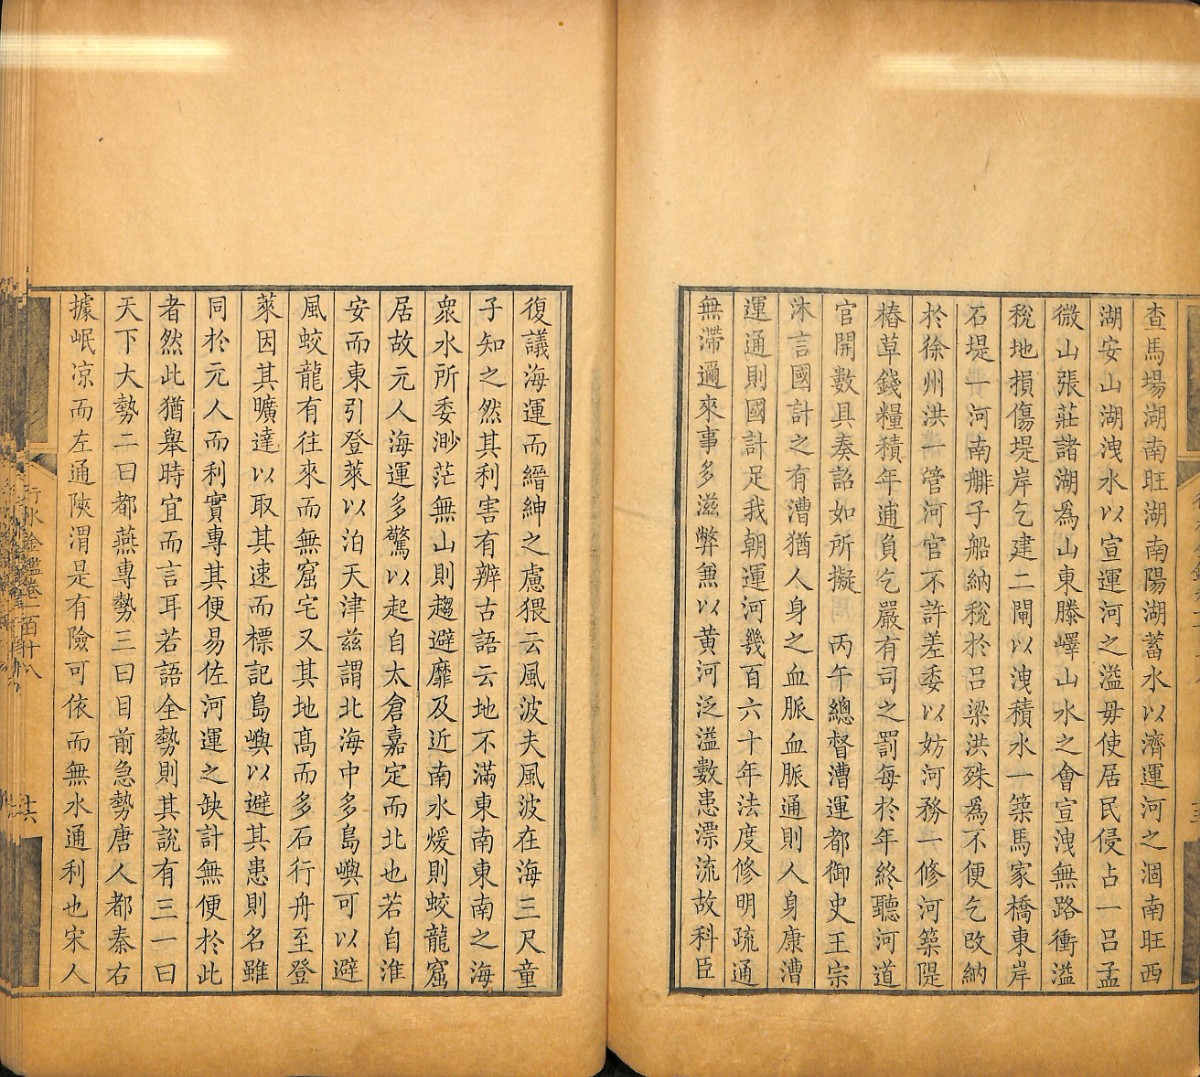 查馬場湖南旺湖南陽湖蓄水以濟運河之涸南旺西
湖安山湖洩水以宣運河之溢毋使居民侵占一呂孟
微山張莊諸湖為山東滕嶧山水之會宣洩無路衝溢
稅地損傷堤岸乞建二閘以洩積水一築馬家橋東岸
石堤一河南艄子船納稅於呂梁洪殊為不便乞改納
於徐州洪一管河官不許差委以妨河務一修河築隄
樁草錢糧積年逋負乞嚴有司之罰每於年終聽河道
官開數具奏詔如所擬 丙午總督漕運都御史王宗
沐言國計之有漕猶人身之血脈血脈通則人身康漕
運通則國計足我朝運河幾百六十年法度修明疏通
無滯邇來事多滋弊兼以黃河泛溢數患漂流故科臣
復議海運而縉紳之慮猥云風波夫風波在海三尺童
子知之然其利害有辨古語云地不滿東南東南之海
衆水所委渺茫無山則趨避靡及近南水煖則蛟龍窟
居故元人海運多驚以起自太倉嘉定而北也若自淮
安而東引登萊以泊天津兹謂北海中多島嶼可以避
風蛟龍有往來而無窟宅又其地髙而多石行舟至登
萊因其曠達以取其速而標記島嶼以避其患則名雖
同於元人而利實專其便易佐河運之缺計無便於此
者然此猶舉時宜而言耳若語全勢則其說有三一曰
天下大勢二曰都燕專勢三曰目前急勢唐人都秦右
據岷凉而左通陝渭是有險可依而無水通利也宋人
行水金鑑卷一百十八